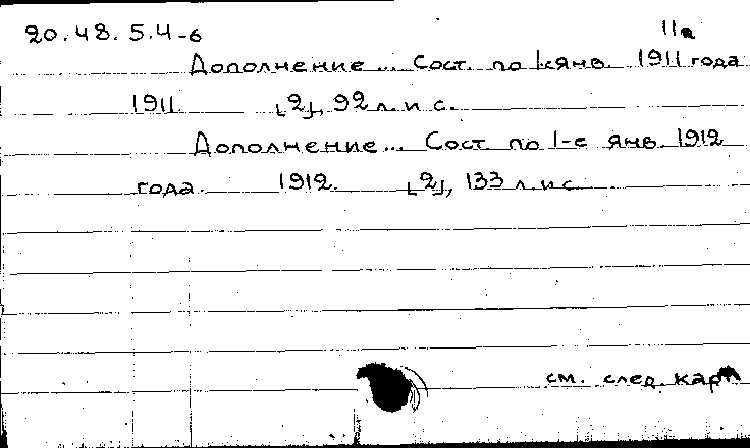 20.48.5.4-6 11а
Дополнение... Сост. по 1-е янв. 1911 года
1911. [2], 92 л. и с.
Дополнение... Сост. по 1-е янв. 1912
года. 1912. [2], 133 л. и с.
см. след. карт